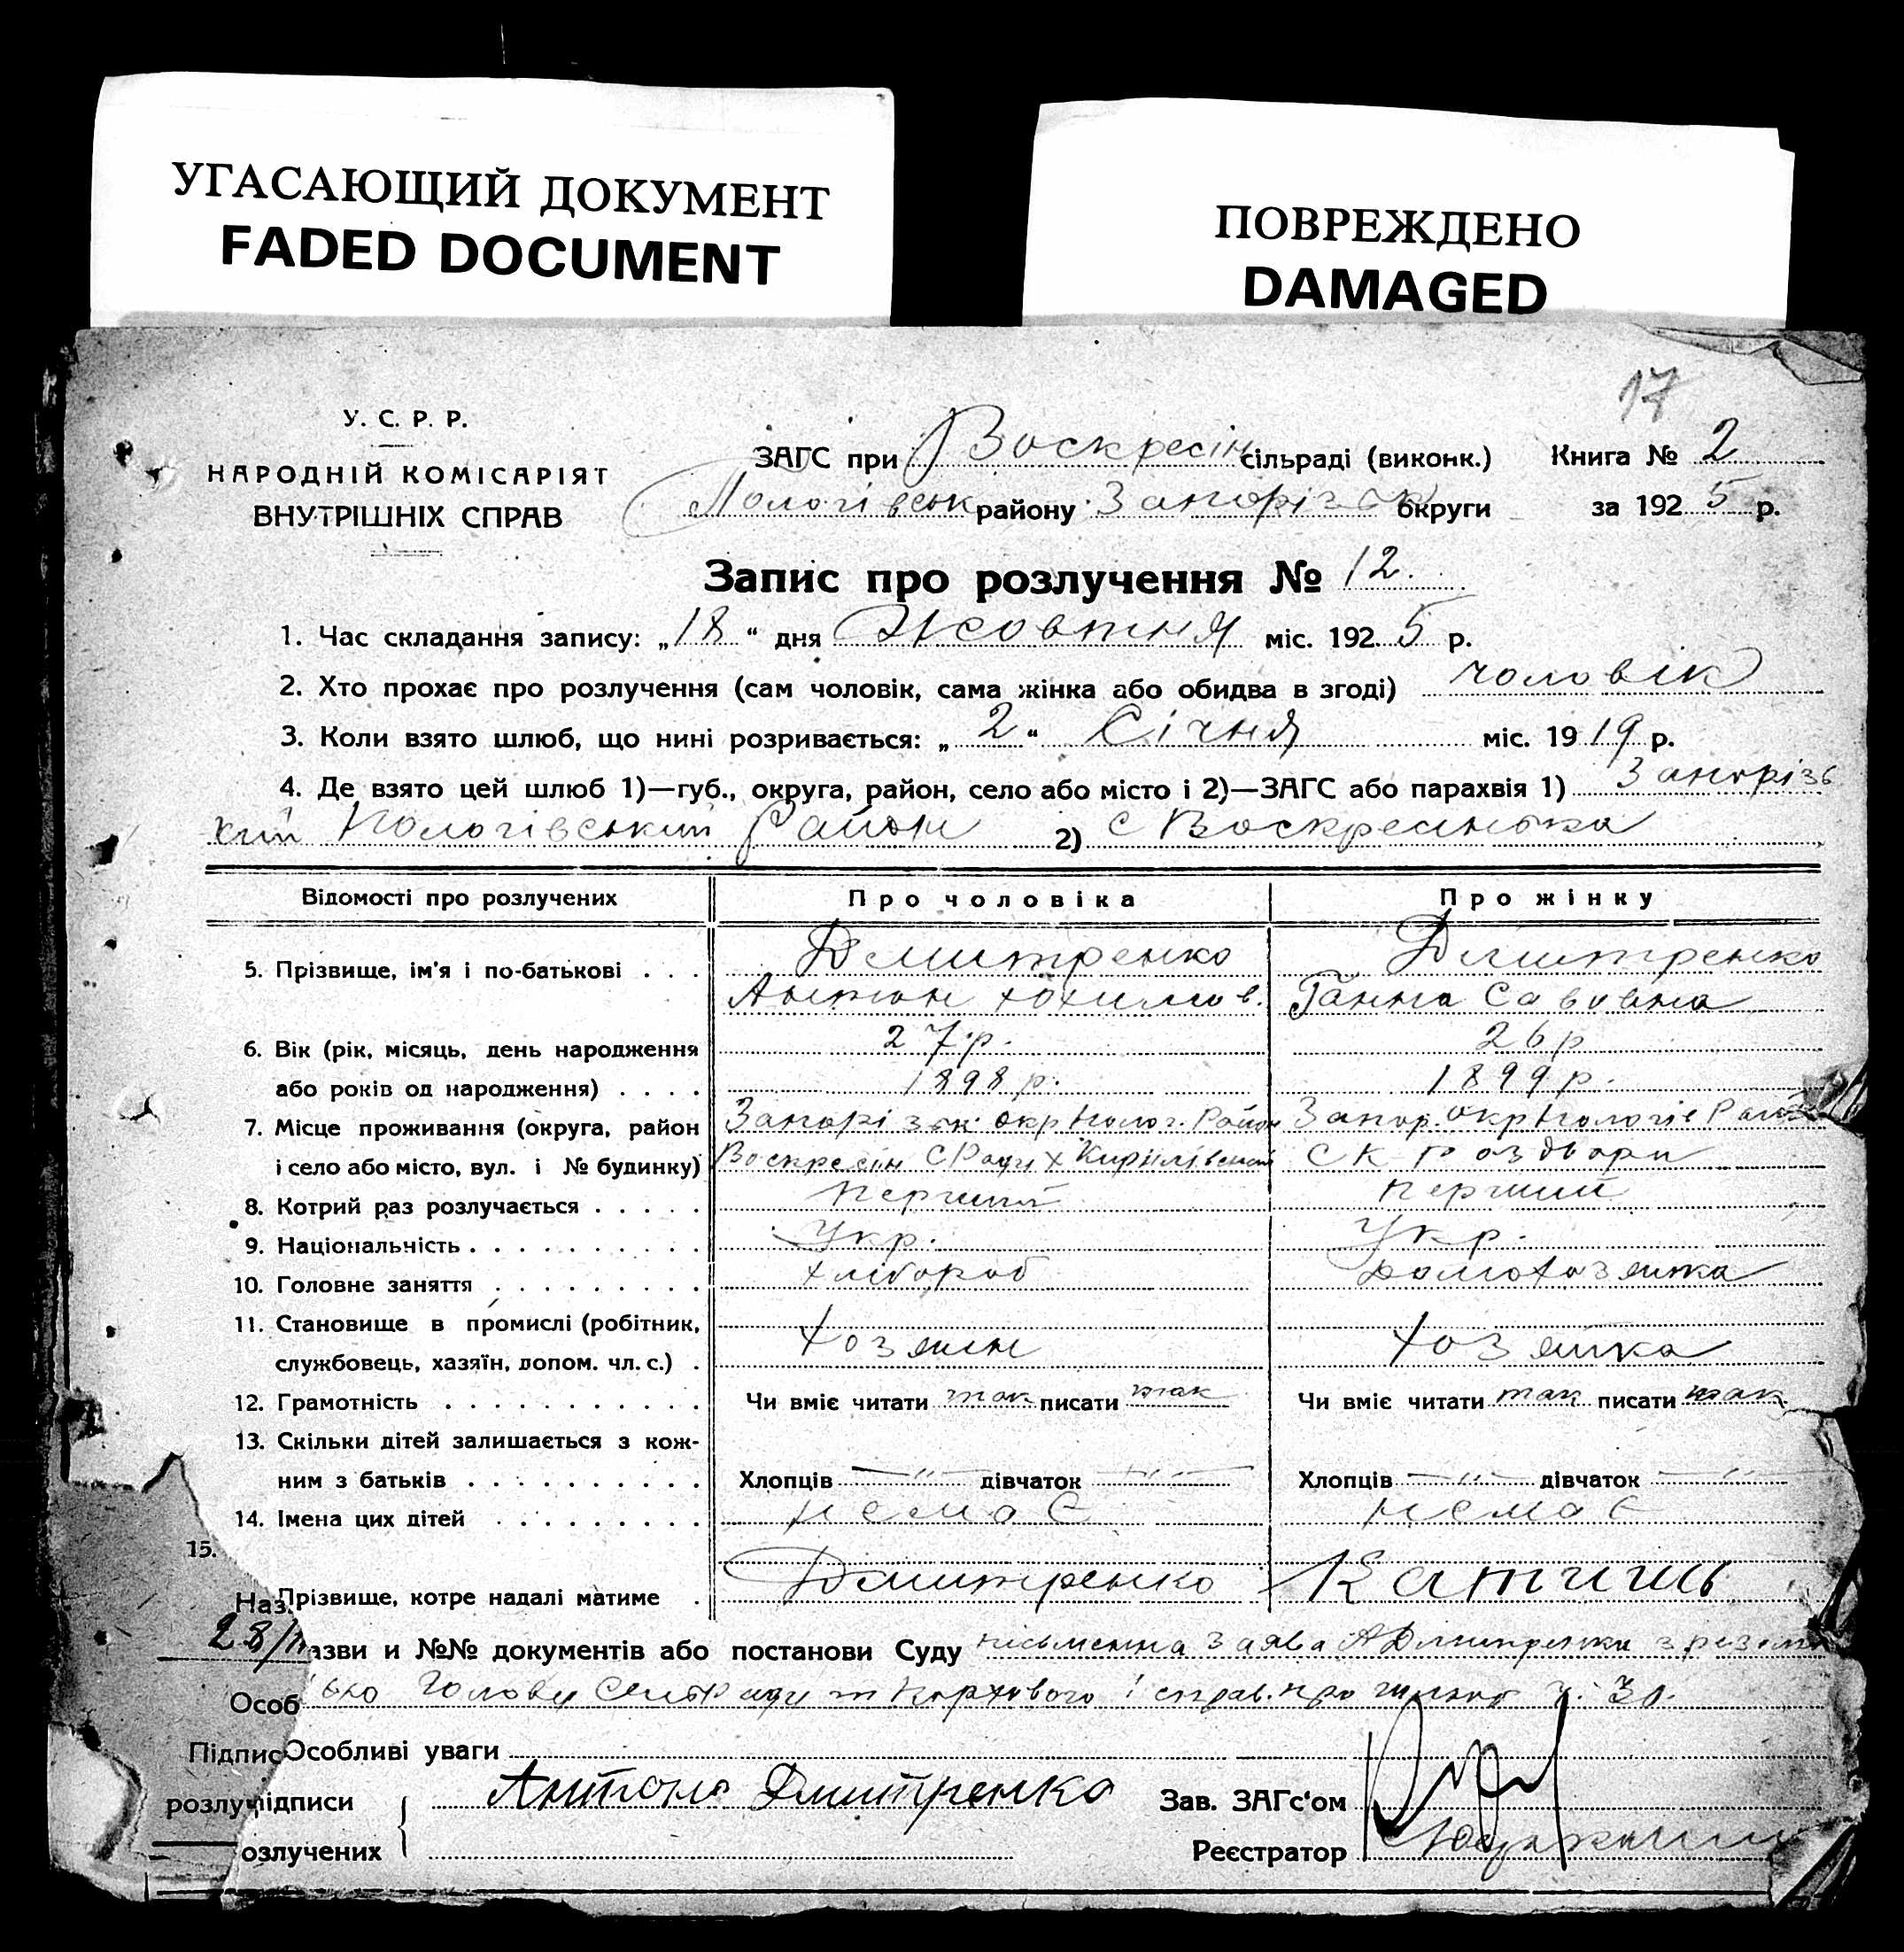 УГАСАЮЩИЙ ДОКУМЕНТ
FADED DOCUMENT
ПОВРЕЖДЕНО
DAMAGED
17
У. С. Р. Р.
НАРОДНІЙ КОМІСАРІЯТ
ВНУТРІШНІХ СПРАВ
ЗАГС при Воскресін сільраді (виконк.) Книга № 2
Пологівськ району Запоріжск округи за 1925 р.
Запис про розлучення № 12.
1. Час складання запису: „18“ дня Жовтня міс. 1925 р.
2. Хто прохає про розлучення (сам чоловік, сама жінка або обидва в згоді) чоловік
3. Коли взято шлюб, що нині розривається: „2“ Січня міс. 1919 р.
4. Де взято цей шлюб 1)—губ., округа, район, село або місто і 2)—ЗАГС або парахвія 1) Запорізь
кий Пологівський Район 2) с Воскресинька
Відомості про розлучених Про чоловіка Про жінку
5. Прізвище, ім'я і по-батькові . . . Дмитренко Дмитренко
Антон Юхимов. Ганна Савовна
6. Вік (рік, місяць, день народження 27 р. 26 р
або років од народження) . . . . 1898 р. 1899 р.
7. Місце проживання (округа, район Запорізьк. окр Полог. Район Запор. окр Пологів Район
і село або місто, вул. і № будинку) Воскресін С Ради х Кирилівський С К
8. Котрий раз розлучається . . . . . перший перший
9. Національність . . . . . . . . . . Укр. Укр.
10. Головне заняття . . . . . . . . . хлібороб домохозяйка
11. Становище в промислі (робітник,
службовець, хазяїн, допом. чл. с.) . хозяин хозяйка
12. Грамотність . . . . . . . . . . . Чи вміє читати так писати так Чи вміє читати так писати так
13. Скільки дітей залишається з кож-
ним з батьків . . . . . . . . . . Хлопців — „ — дівчаток — „ — Хлопців — „ — дівчаток — „ —
14. Імена цих дітей . . . . . . . . . немає немає
15.
Прізвище, котре надалі матиме . Дмитренко Катиш
Наз.
28/
азви и №№ документів або постанови Суду письменна заява А Дмитренка з
Голови Сільради т
Особ
Підпис Особливі уваги
розлуч ідписи Антон Дмитренко Зав. ЗАГс'ом
озлучених Реєстратор